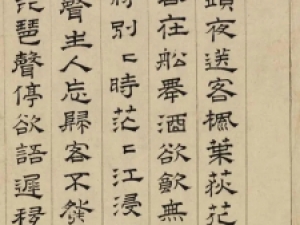 頭夜送客楓葉荻花
客在船舉酒欲飲無
將別〻時茫〻江浸
聲主人忘歸客不發
琵琶聲停欲語遲移